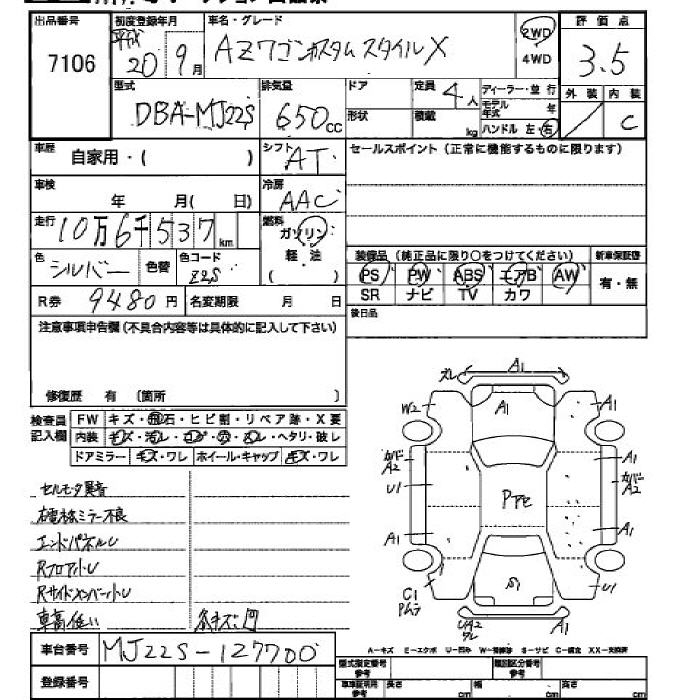 出品番号 初度登録年月 車名・グレード 評価点
7106 平成20 9月 AZワゴンカスタムスタイルX 2WD 4WD 3.5
型式 排気量 ドア 定員 ディーラー・並行 外装 内装
DBA-MJ22S 650cc 4人 モデル年式 年 C
形状 積載 kg ハンドル 左・右
車歴 自家用・( ) シフト AT セールスポイント(正常に機能するものに限ります)
車検 年 月( 日) 冷房 AAC
走行 10万6千537km 燃料 ガソリン
軽油
( )
色 シルバー 色替 色コード Z2S
装備品(純正品に限り○をつけてください) 新車保証書
PS PW ABS エアB AW 有・無
SR ナビ TV カワ
R券 9480円 名変期限 月 日 後日品
注意事項申告欄(不具合内容等は具体的に記入して下さい)
修復歴 有 〔箇所 〕
検査員記入欄 FW キズ・飛石・ヒビ割・リペア跡・X要
内装 キズ・汚レ・コゲ・穴・スレ・ヘタリ・破レ
ドアミラー キズ・ワレ ホイール・キャップ キズ・ワレ
セルモータ異音
右電格ミラー不良
エンドパネルU
Rフロア小U
Rサイドメンバー小U
車高低い
ズレ A1
W2 A1 A1
カバーA2 A1
U1 Pте カバーA2
A1 A1
C1 S1 U1
UA2 ワレ A1
A-キズ E-エクボ U-凹み W-補修跡 S-サビ C-腐食 XX-交換済
車台番号 MJ22S-127700
登録番号
型式指定番号 参考 類別区分番号 参考
車車証明用 参考 長さ cm 幅 cm 高さ cm